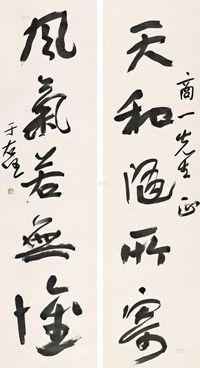 天和隨所寄
商一先生 正
風氣若無懷
于右任